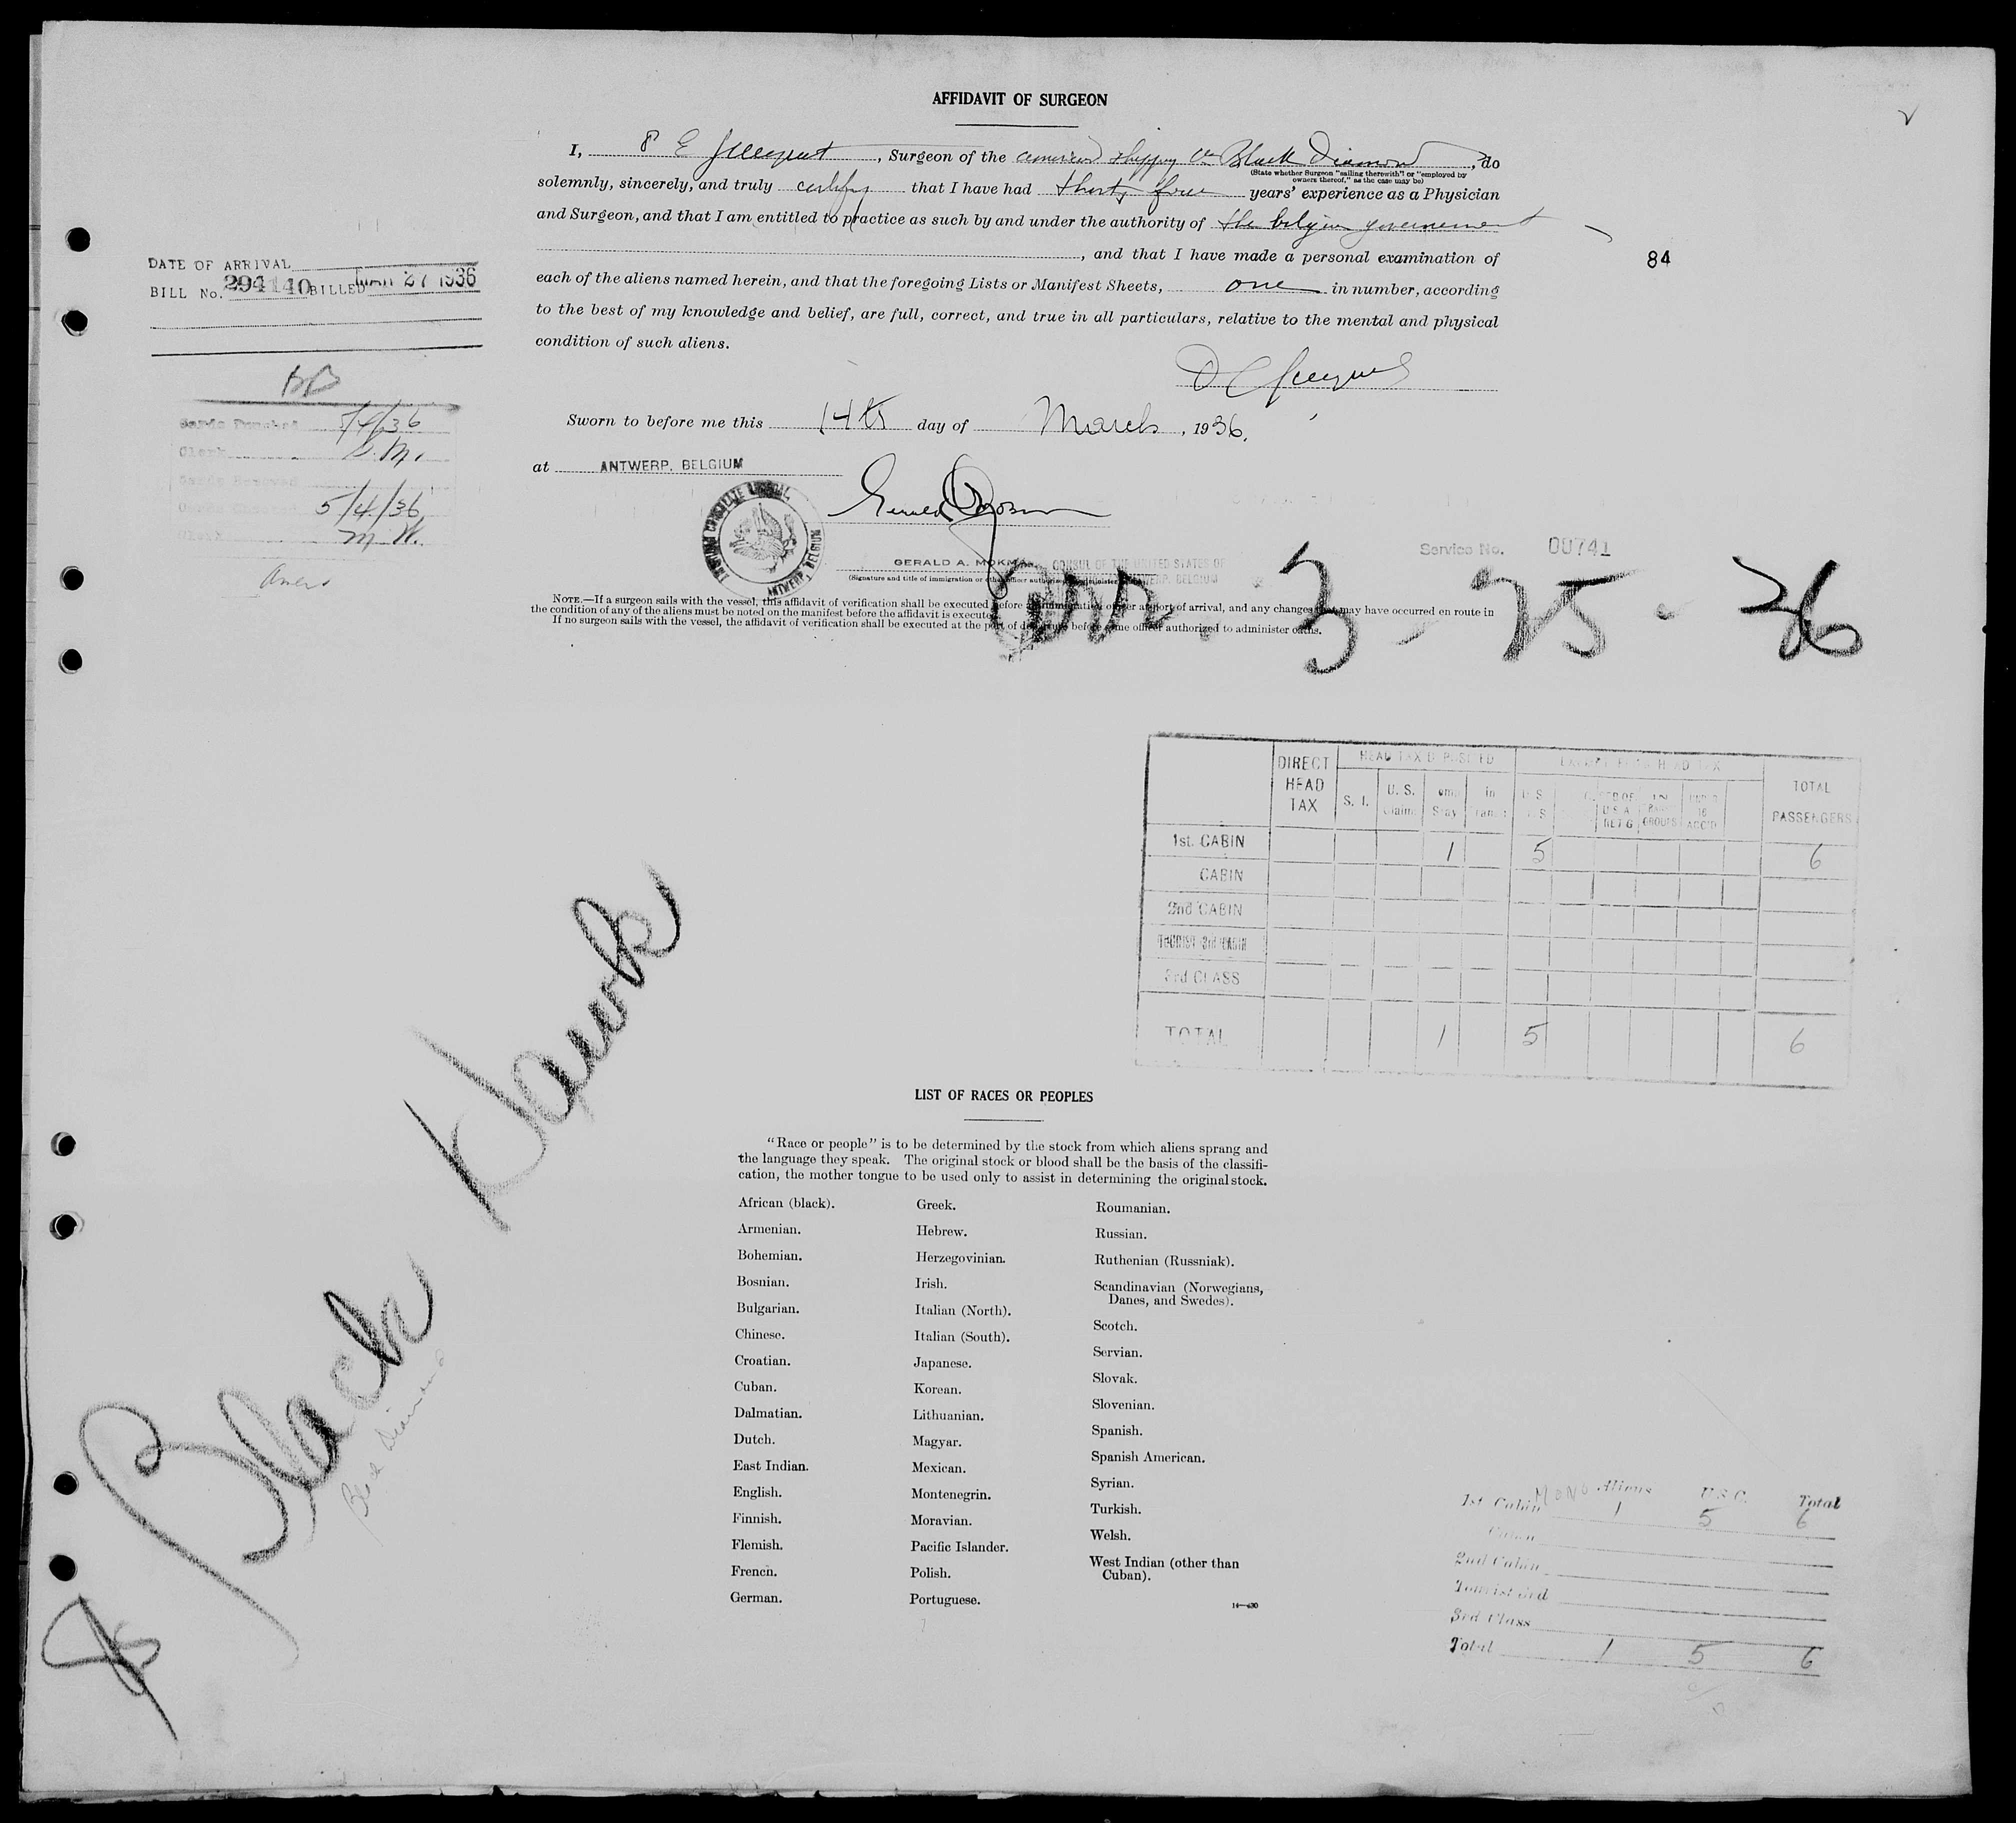 AFFIDAVIT OF SURGEON
I, E , Surgeon of the american shipping Co Black Diamond, do
(State whether Surgeon "sailing therewith" or "employed by
owners thereof," as the case may be)
solemnly, sincerely, and truly certify that I have had thirty four years' experience as a Physician
and Surgeon, and that I am entitled to practice as such by and under the authority of the belgian government
, and that I have made a personal examination of
84
each of the aliens named herein, and that the foregoing Lists or Manifest Sheets, one in number, according
to the best of my knowledge and belief, are full, correct, and true in all particulars, relative to the mental and physical
condition of such aliens.
DATE OF ARRIVAL
BILL No. 294140 BILLED MAR 27 1936
5/4/36
Clerk
5/4/36
Clerk M.W.
Sworn to before me this 14th day of March, 1936,
at ANTWERP, BELGIUM
GERALD A. MOKMA CONSUL OF THE UNITED STATES OF
ANTWERP, BELGIUM
(Signature and title of immigration or other officer authorized to administer
Service No. 00741
NOTE.—If a surgeon sails with the vessel, this affidavit of verification shall be executed before an immigration officer at port of arrival, and any changes that may have occurred en route in
the condition of any of the aliens must be noted on the manifest before the affidavit is executed.
If no surgeon sails with the vessel, the affidavit of verification shall be executed at the port of departure before some officer authorized to administer oaths.
Arr. 3 - 25 - 36
DIRECT HEAD TAX
HEAD TAX DEPOSITED
EXEMPT FROM HEAD TAX
TOTAL PASSENGERS
S. I.
U. S. Claim
1st. CABIN 1 5 6
CABIN
2nd CABIN
TOURIST 3rd CABIN
3rd CLASS
TOTAL 1 5 6
Black Hawk
Black Diamond
LIST OF RACES OR PEOPLES
"Race or people" is to be determined by the stock from which aliens sprang and
the language they speak. The original stock or blood shall be the basis of the classifi-
cation, the mother tongue to be used only to assist in determining the original stock.
African (black).
Armenian.
Bohemian.
Bosnian.
Bulgarian.
Chinese.
Croatian.
Cuban.
Dalmatian.
Dutch.
East Indian.
English.
Finnish.
Flemish.
French.
German.
Greek.
Hebrew.
Herzegovinian.
Irish.
Italian (North).
Italian (South).
Japanese.
Korean.
Lithuanian.
Magyar.
Mexican.
Montenegrin.
Moravian.
Pacific Islander.
Polish.
Portuguese.
Roumanian.
Russian.
Ruthenian (Russniak).
Scandinavian (Norwegians,
Danes, and Swedes).
Scotch.
Servian.
Slovak.
Slovenian.
Spanish.
Spanish American.
Syrian.
Turkish.
Welsh.
West Indian (other than
Cuban).
14—430
Aliens U.S.C. Total
1st Cabin 1 5 6
Cabin
2nd Cabin
Tourist 3rd
3rd Class
Total 1 5 6